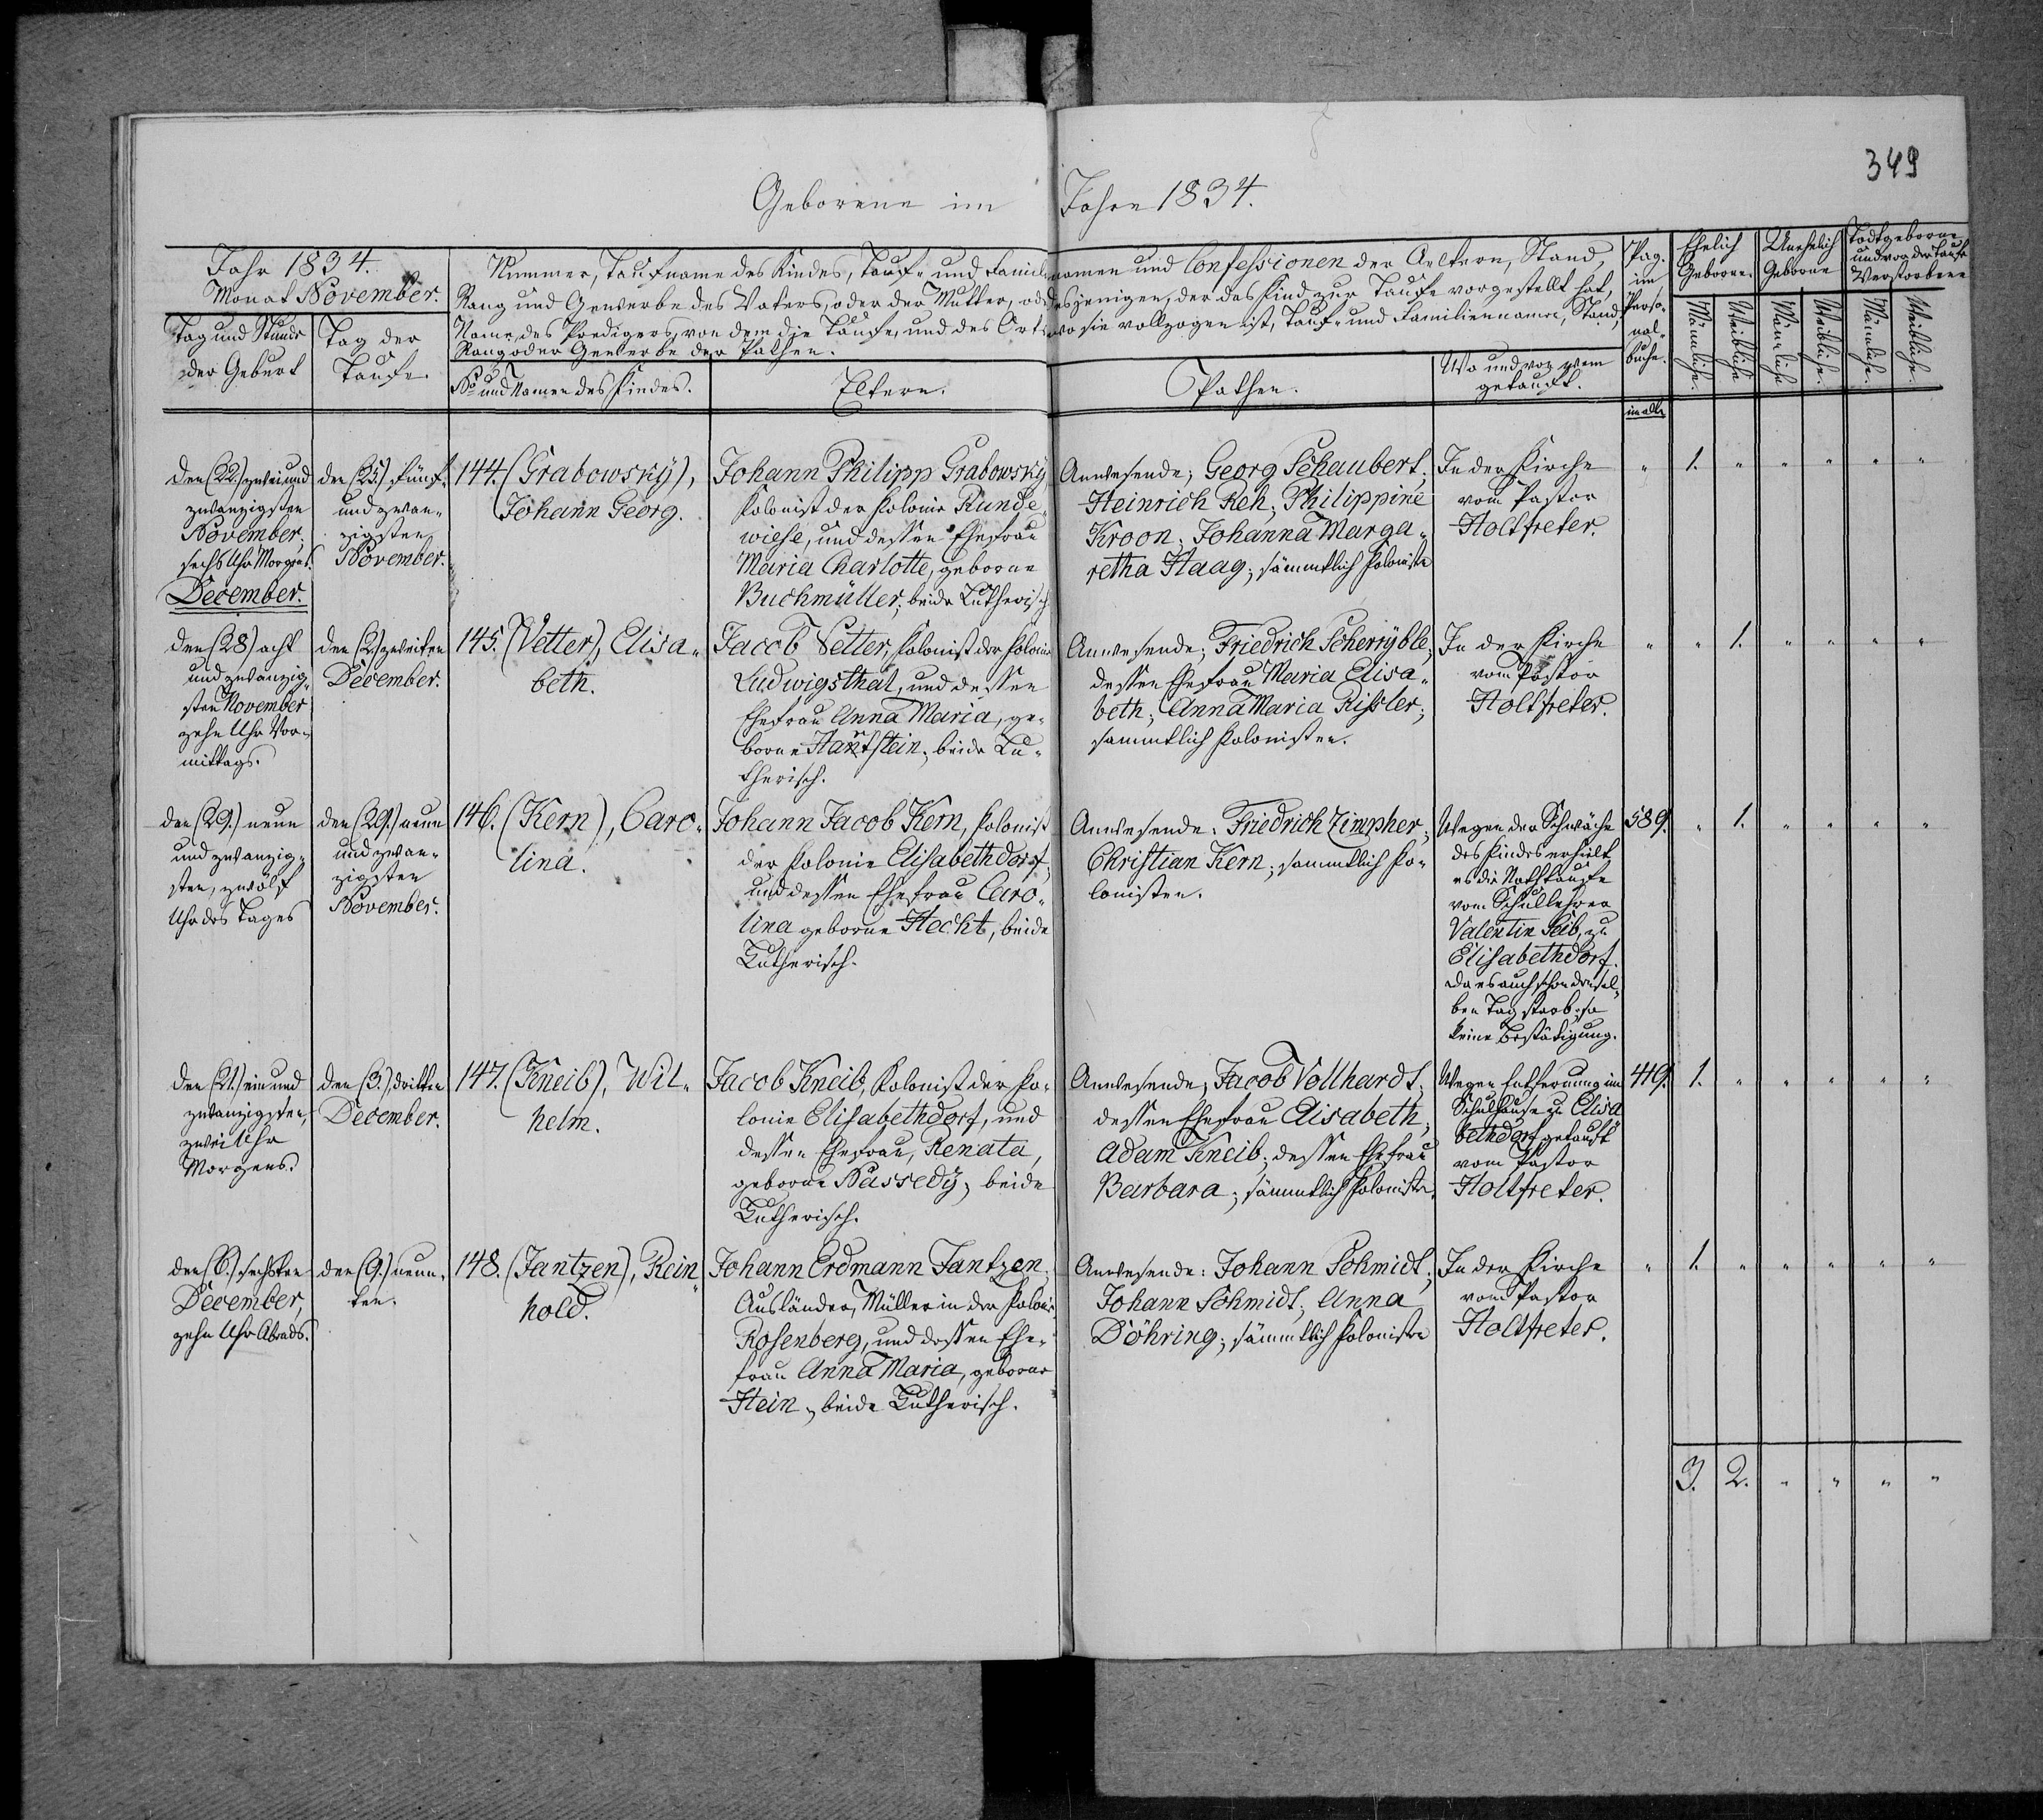 349
Geborene im Jahre 1834.
Jahr 1834.
Monat November.
Tag und Stunde
der Geburt
Tag der
Taufe.
Nummer, Taufname des Kindes, Tauf- und Familiennamen und Confessionen der Aeltern, Stand,
Rang und Gewerbe des Vaters, oder der Mutter, oder desjenigen, der das Kind zur Taufe vorgestellt hat,
Name des Predigers, von dem die Taufe, und des Orts wo sie vollzogen ist, Tauf- und Familiennamen, Stand,
Rang oder Gewerbe der Pathen.
No und Namen des Kindes.
Eltern.
Pathen.
Wo und von wem
getauft.
Pag.
im
Perso-
nal-
buche.
Ehelich
Geborne.
Unehelich
Geborne
Todtgeborne
und vor der Taufe
Verstorbene
Männliche.
Weibliche
Männliche
Weibliche.
Männliche.
Weibliche.
im alten
den (22.) zwei und
zwanzigsten
November,
sechs Uhr Morgens.
December.
den (25.) fünf-
und zwan-
zigsten
November.
144. (Grabowsky),
Johann Georg.
Johann Philipp Grabowsky
Kolonist der Kolonie Runde-
wiese, und dessen Ehefrau
Maria Charlotte, geborne
Buchmüller; beide Lutherisch.
Anwesende; Georg Schaubert,
Heinrich Reh, Philippine
Kroon, Johanna Marga-
retha Haag; sämmtlich Koloniste
In der Kirche
vom Pastor
Holtfreter.
" 1. " " " " "
den (28) acht
und zwanzig-
sten November
zehn Uhr Vor-
mittags.
den (2.) zweiten
December.
145. (Vetter), Elisa-
beth.
Jacob Vetter, Kolonist der Kolonie
Ludwigsthal, und dessen
Ehefrau Anna Maria, ge-
borne Hartstein; beide Lu-
therisch.
Anwesende; Friedrich Scherryble,
dessen Ehefrau Maria Elisa-
beth; Anna Maria Rissler;
sammtlich Kolonisten.
In der Kirche
vom Pastor
Holtfreter.
" " 1. " " " "
den (29.) neun
und zwanzig-
sten, zwölf
Uhr des Tages
den (29.) neun
und zwan-
zigsten
November.
146. (Kern), Caro-
lina.
Johann Jacob Kern, Kolonist
der Kolonie Elisabethdorf,
und dessen Ehefrau Caro-
lina geborne Hecht, beide
Lutherisch.
Anwesende: Friedrich Zimpher;
Christian Kern; sammtlich Ko-
lonisten.
Wegen der Schwäche
des Kindes erhielt
es die Nothtaufe
vom Schullehrer
Valentin Seib, zu
Elisabethdorf.
da es auch schon densel-
ben Tag starb, so
keine Bestätigung.
589. " 1. " " " "
den (21.) ein und
zwanzigsten,
zwei Uhr
Morgens.
den (3.) dritten
December.
147. (Kneib), Wil-
helm.
Jacob Kneib, Kolonist der Ko-
lonie Elisabethdorf, und
dessen Ehefrau, Renata,
geborne Nassedy; beide
Lutherisch.
Anwesende; Jacob Vollhardt,
dessen Ehefrau Elisabeth,
Adam Kneib; dessen Ehefrau
Barbara; sämmtlich Koloniste.
Wegen Entfernung im
Schulhause zu Elisa
bethdorf getauft
vom Pastor
Holtfreter.
419. 1. " " " " "
den (6.) sechsten
December,
zehn Uhr Abends.
den (9.) neun-
ten.
148. (Jantzen), Rein
hold.
Johann Erdmann Jantzen
Ausländer, Müller in der Kolonie
Rosenberg, und dessen Ehe-
frau Anna Maria, geborne
Hein, beide Lutherisch.
Anwesende: Johann Schmidt,
Johann Schmidt; Anna
Döhring; sämmtlich Koloniste
In der Kirche
vom Pastor
Holtfreter.
" 1. " " " " "
3. 2. " " " "